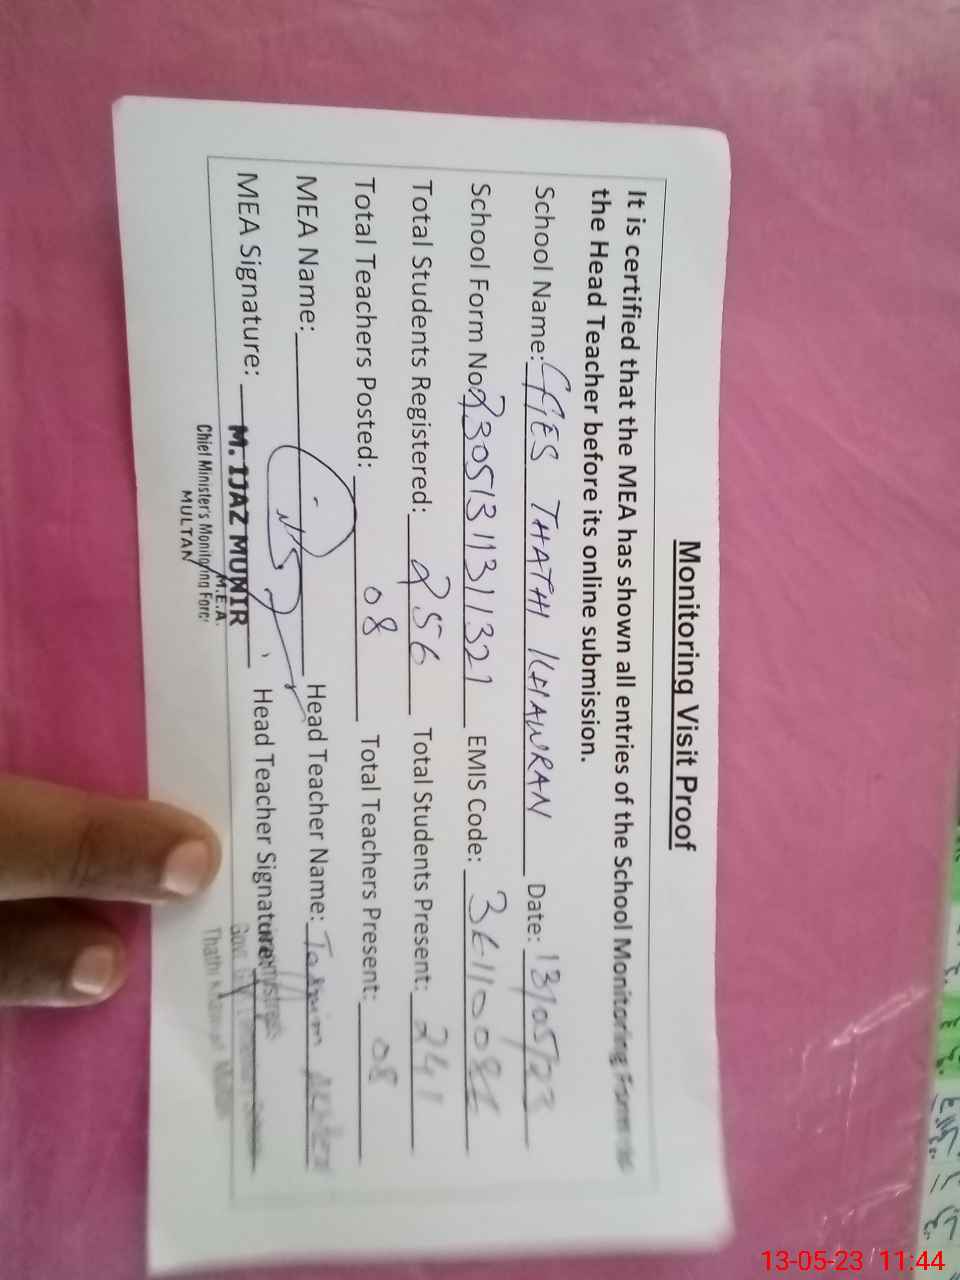 Monitoring Visit Proof
It is certified that the MEA has shown all entries of the School Monitoring Form to
the Head Teacher before its online submission.
School Name: GGES THATHI KHAWRAN Date: 13/05/23
School Form No: 23051311311321 EMIS Code:
Total Students Registered: 256 Total Students Present: 241
Total Teachers Posted: 08 Total Teachers Present: 08
MEA Name: Head Teacher Name:
MEA Signature: Head Teacher Signature:
M. IJAZ MUNIR
M.E.A.
Chief Minister's Monitoring Force
MULTAN
13-05-23 11:44